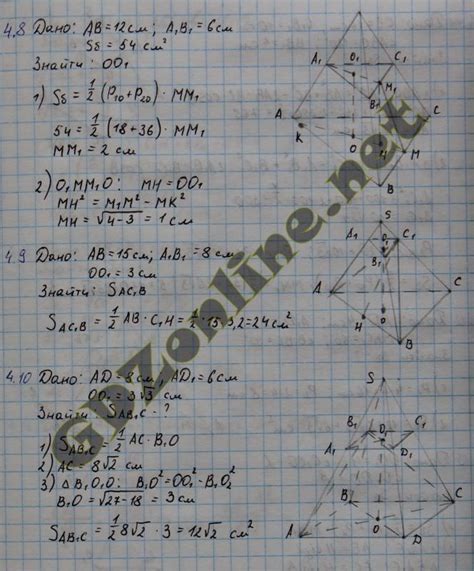 4.8 Дано: AB=12см; A₁B₁=6см
Sб = 54 см²
Знайти: OO₁
1) Sб = 1/2 (P₁₀+P₂₀) · MM₁
54 = 1/2 (18+36) · MM₁
MM₁ = 2 см
2) O₁MM₁O: MH = OO₁
MH² = M₁M² - MK²
MH = √4-3 = 1 см
4.9 Дано: AB=15см; A₁B₁=8см
OO₁ = 3см
Знайти: SAC₁B
SAC₁B = 1/2 AB · C₁H = 1/2 · 15 · 3,2 = 24 см²
4.10 Дано: AD=8см, AD₁=6см
OO₁ = 3√3 см
Знайти SAB₁C - ?
1) SAB₁C = 1/2 AC · B₁O
2) AC = 8√2 см
3) Δ B₁O₁O: B₁O² = OO₁² - B₁O₁²
B₁O = √27-18 = 3см
SAB₁C = 1/2 8√2 · 3 = 12√2 см²
A₁ O₁ C₁
M₁
B₁
A C
K O H M
B
S
A₁ O₁ C₁
B₁
A C
H O
B
S
B₁ O₁ C₁
A₁ D₁
B C
O
A D
GDZonline.net